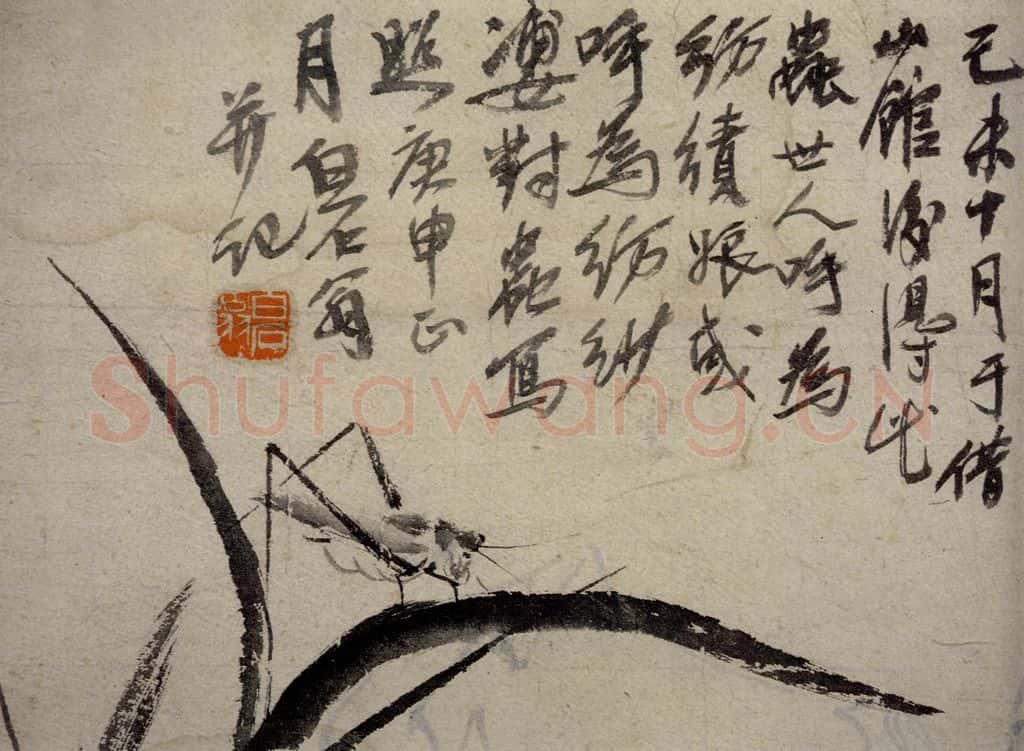 己未十月于借
山館後得此
蟲世人呼為
紡績娘或
呼為紡紗
婆對蟲寫
照庚申正
月白石翁
并記
白石翁
Shufawang.CN